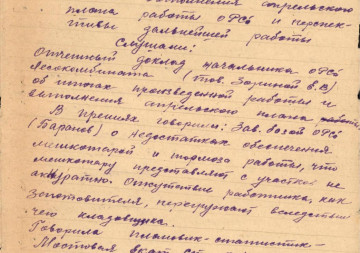 выполнения апрельского
плана работы ОРСа и перспек-
тивы дальнейшей работы
Слушали:
Отчетный доклад начальника ОРСа
Лесокомбината (тов. Зориной В.В)
об итогах произведенной работы и
выполнения апрельского плана работы
В прениях говорили: Зав. базой ОРСа
(Баранов) о недостатках обеспечения
мешкотарой и тормозе работы, что
мешкотару предоставляют с участков не
аккуратно. Отсутствие работника, как
заготовителя, перегружает вследствии
чего кладовщика.
Говорила плановик-статистик-
Мостовая